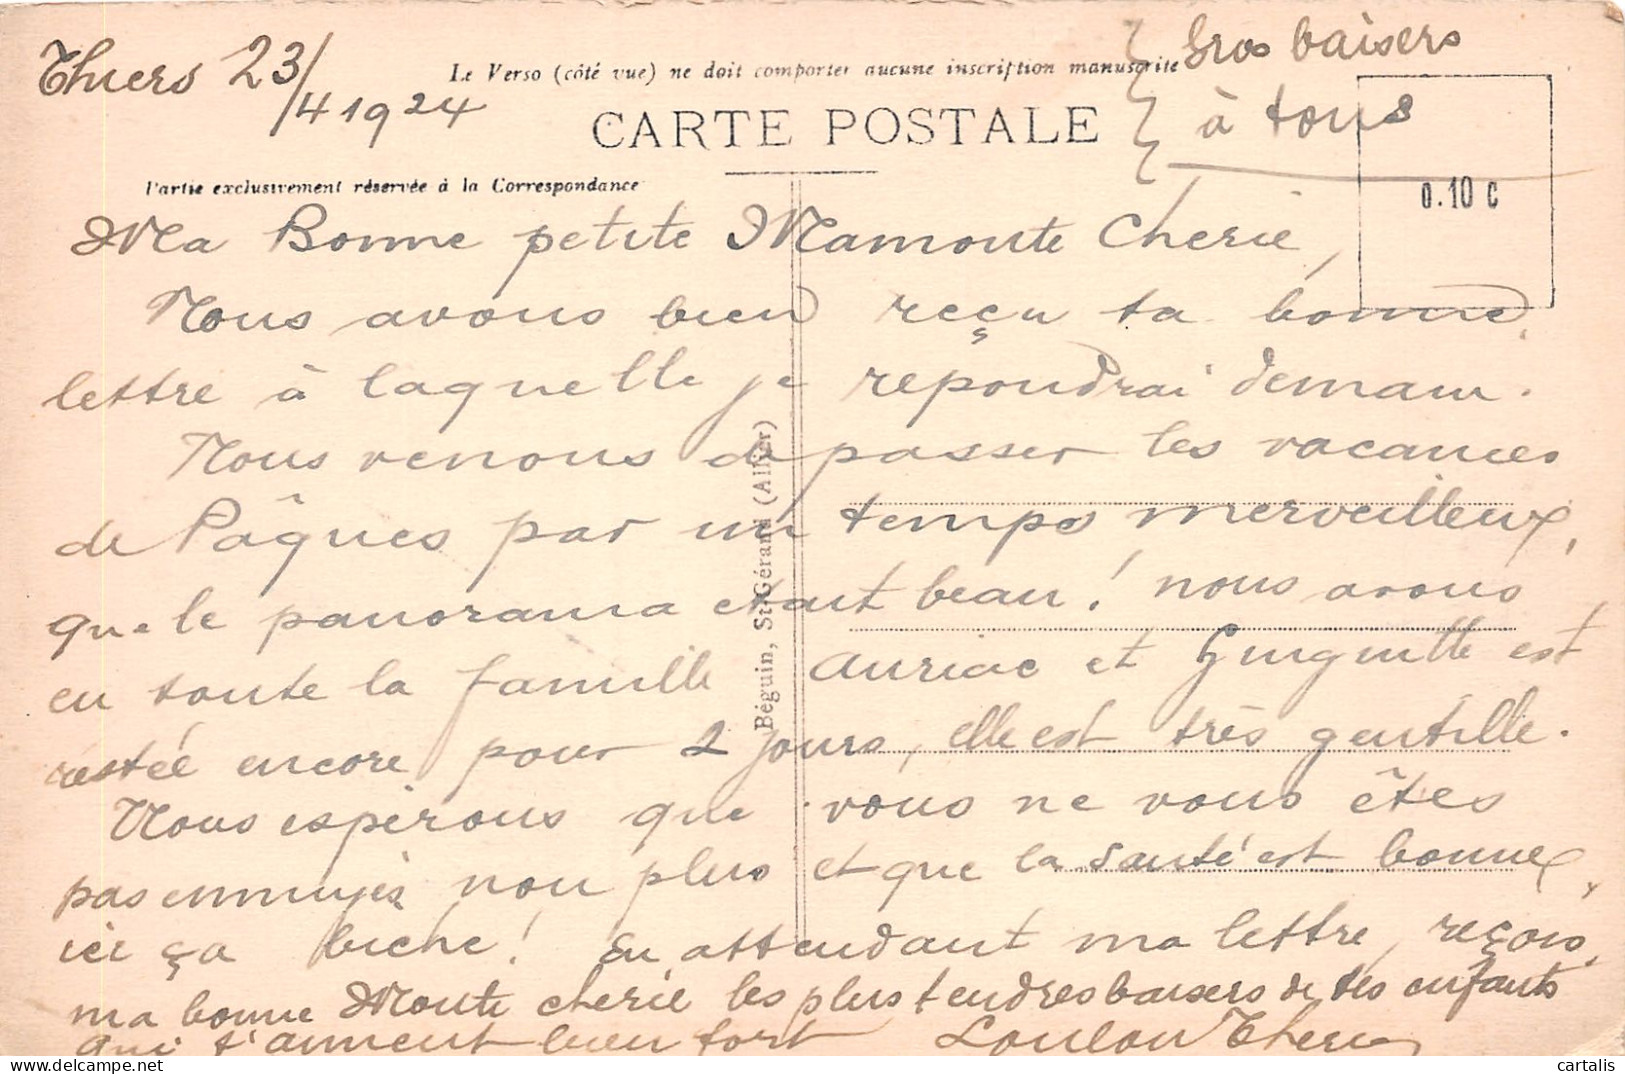 Thiers 23/4 1924
Gros baisers
à tous
Le Verso (côté vue) ne doit comporter aucune inscription manuscrite
CARTE POSTALE
Partie exclusivement réservée à la Correspondance
0.10 c
Ma Bonne petite Mamoute Cherie,
Nous avons bien reçu ta bonne
lettre à laquelle je repondrai demain.
Nous venons de passer les vacances
de Pâques par un temps merveilleux,
que le panorama etait beau! nous avons
eu toute la famille Auriac et Guiguitte est
restée encore pour 2 jours, elle est très gentille.
Nous espèrons que vous ne vous êtes
pas ennuyés non plus et que la santé est bonne,
ici ça biche! En attendant ma lettre, reçois,
ma bonne Moute cherie les plus tendres baisers de tes enfants
qui t'aiment bien fort Loulou
Béguin, St-Gérand (Allier)
cartalis